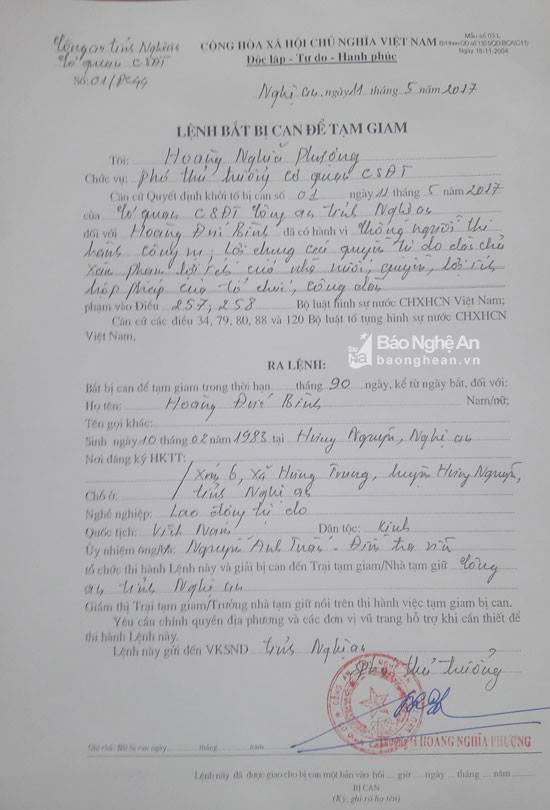 Công an tỉnh Nghệ an
Cơ quan CSĐT
Số: 01/PC44
CỘNG HÒA XÃ HỘI CHỦ NGHĨA VIỆT NAM
Độc lập - Tự do - Hạnh phúc
Mẫu số 03.L
Ngày 18-11-2004
Nghệ an, ngày 11 tháng 5 năm 2017
LỆNH BẮT BỊ CAN ĐỂ TẠM GIAM
Tôi: Hoàng Nghĩa Phượng
Chức vụ: phó thủ trưởng cơ quan CSĐT
Căn cứ Quyết định khởi tố bị can số 01 ngày 11 tháng 5 năm 2017
của cơ quan CSĐT Công an tỉnh Nghệ an
đối với Hoàng Đức Bình đã có hành vi chống người thi
hành công vụ; lợi dụng các quyền tự do dân chủ
xâm phạm lợi ích của nhà nước, quyền, lợi ích
hợp pháp của tổ chức, công dân
phạm vào Điều 257, 258 Bộ luật hình sự nước CHXHCN Việt Nam;
Căn cứ các điều 34, 79, 80, 88 và 120 Bộ luật tố tụng hình sự nước CHXHCN
Việt Nam,
Báo Nghệ An
baonghean.vn
RA LỆNH:
Bắt bị can để tạm giam trong thời hạn tháng 90 ngày, kể từ ngày bắt, đối với:
Họ tên: Hoàng Đức Bình Nam/nữ:
Tên gọi khác:
Sinh ngày 10 tháng 02 năm 1983 tại Hưng Nguyên, Nghệ an
Nơi đăng ký HKTT:
Xóm 6, xã Hưng Trung, huyện Hưng Nguyên,
Chỗ ở: tỉnh Nghệ an
Nghề nghiệp: Lao động tự do
Quốc tịch: Việt Nam Dân tộc: Kinh
Ủy nhiệm ông/bà: Nguyễn Anh Tuấn - Điều tra viên
tổ chức thi hành Lệnh này và giải bị can đến Trại tạm giam/Nhà tạm giữ Công
an tỉnh Nghệ an
Giám thị Trại tạm giam/Trưởng nhà tạm giữ nói trên thi hành việc tạm giam bị can.
Yêu cầu chính quyền địa phương và các đơn vị vũ trang hỗ trợ khi cần thiết để
thi hành Lệnh này.
Lệnh này gửi đến VKSND tỉnh Nghệ an
phó thủ trưởng
HOÀNG NGHĨA PHƯỢNG
Ghi chú: Bắt bị can ngày tháng năm
Lệnh này đã được giao cho bị can một bản vào hồi giờ ngày tháng năm
BỊ CAN
(Ký, ghi rõ họ tên)